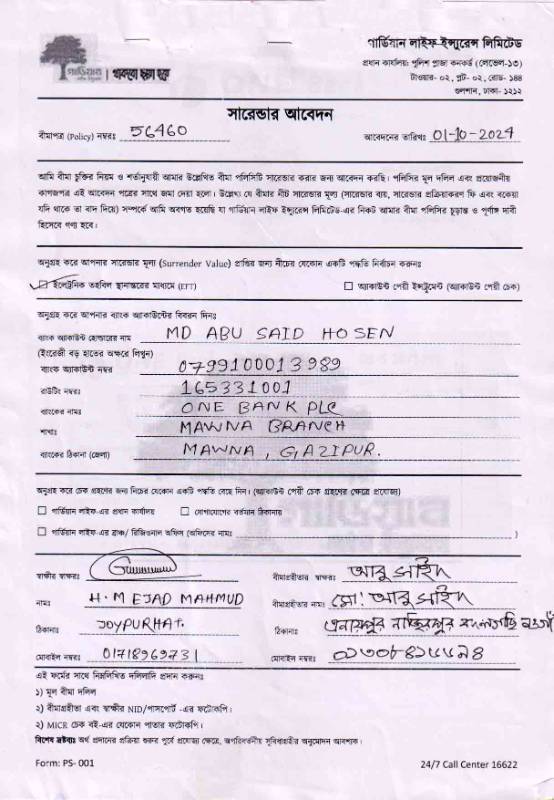 গার্ডিয়ান | থাকবো ছায়া হয়ে
গার্ডিয়ান লাইফ ইন্স্যুরেন্স লিমিটেড
প্রধান কার্যালয়: পুলিশ প্লাজা কনকর্ড (লেভেল-১৩)
টাওয়ার- ০২, প্লট- ০২, রোড- ১৪৪
গুলশান, ঢাকা- ১২১২
সারেন্ডার আবেদন
বীমাপত্র (Policy) নম্বরঃ 56460 আবেদনের তারিখঃ 01-10-2024
আমি বীমা চুক্তির নিয়ম ও শর্তানুযায়ী আমার উল্লেখিত বীমা পলিসিটি সারেন্ডার করার জন্য আবেদন করছি। পলিসির মূল দলিল এবং প্রয়োজনীয়
কাগজপত্র এই আবেদন পত্রের সাথে জমা দেয়া হলো। উল্লেখ্য যে বীমার নীট সারেন্ডার মূল্য (সারেন্ডার ব্যয়, সারেন্ডার প্রক্রিয়াকরণ ফি এবং বকেয়া
যদি থাকে তা বাদ দিয়ে) সম্পর্কে আমি অবগত হয়েছি যা গার্ডিয়ান লাইফ ইন্স্যুরেন্স লিমিটেড-এর নিকট আমার বীমা পলিসির চূড়ান্ত ও পূর্ণাঙ্গ দাবী
হিসেবে গণ্য হবে।
অনুগ্রহ করে আপনার সারেন্ডার মূল্য (Surrender Value) প্রাপ্তির জন্য নীচের যেকোন একটি পদ্ধতি নির্বাচন করুনঃ
ইলেক্ট্রনিক তহবিল স্থানান্তরের মাধ্যমে (EFT) অ্যাকাউন্ট পেয়ী ইন্সট্রুমেন্ট (অ্যাকাউন্ট পেয়ী চেক)
অনুগ্রহ করে আপনার ব্যাংক অ্যাকাউন্টের বিবরন দিনঃ
ব্যাংক অ্যাকাউন্ট হোল্ডারের নাম MD ABU SAID HOSEN
(ইংরেজী বড় হাতের অক্ষরে লিখুন)
ব্যাংক অ্যাকাউন্ট নম্বর 0799100013989
রাউটিং নম্বরঃ 165331001
ব্যাংকের নামঃ ONE BANK PLC
শাখাঃ MAWNA BRANCH
ব্যাংকের ঠিকানা (জেলা) MAWNA, GAZIPUR.
অনুগ্রহ করে চেক গ্রহণের জন্য নিচের যেকোন একটি পদ্ধতি বেছে নিন। (অ্যাকাউন্ট পেয়ী চেক গ্রহণের ক্ষেত্রে প্রযোজ্য)
গার্ডিয়ান লাইফ-এর প্রধান কার্যালয় যোগাযোগের বর্তমান ঠিকানায়
গার্ডিয়ান লাইফ-এর ব্রাঞ্চ/ রিজিওনাল অফিস (অফিসের নামঃ )
স্বাক্ষীর স্বাক্ষরঃ বীমাগ্রহীতার স্বাক্ষরঃ আবু সাইদ
নামঃ H.M EJAD MAHMUD বীমাগ্রহীতার নামঃ মো: আবু সাইদ
ঠিকানাঃ JOYPURHAT. ঠিকানাঃ এনায়পুর
মোবাইল নম্বরঃ 01718969731 মোবাইল নম্বরঃ
এই ফর্মের সাথে নিম্নলিখিত দলিলাদি প্রদান করুনঃ
১) মূল বীমা দলিল
২) বীমাগ্রহীতা এবং স্বাক্ষীর NID/পাসপোর্ট -এর ফটোকপি।
২) MICR চেক বই-এর যেকোন পাতার ফটোকপি।
বিশেষ দ্রষ্টব্যঃ অর্থ প্রদানের প্রক্রিয়া শুরুর পূর্বে প্রযোজ্য ক্ষেত্রে, অপরিবর্তনীয় সুবিধাগ্রহীর অনুমোদন আবশ্যক।
Form: PS- 001 24/7 Call Center 16622